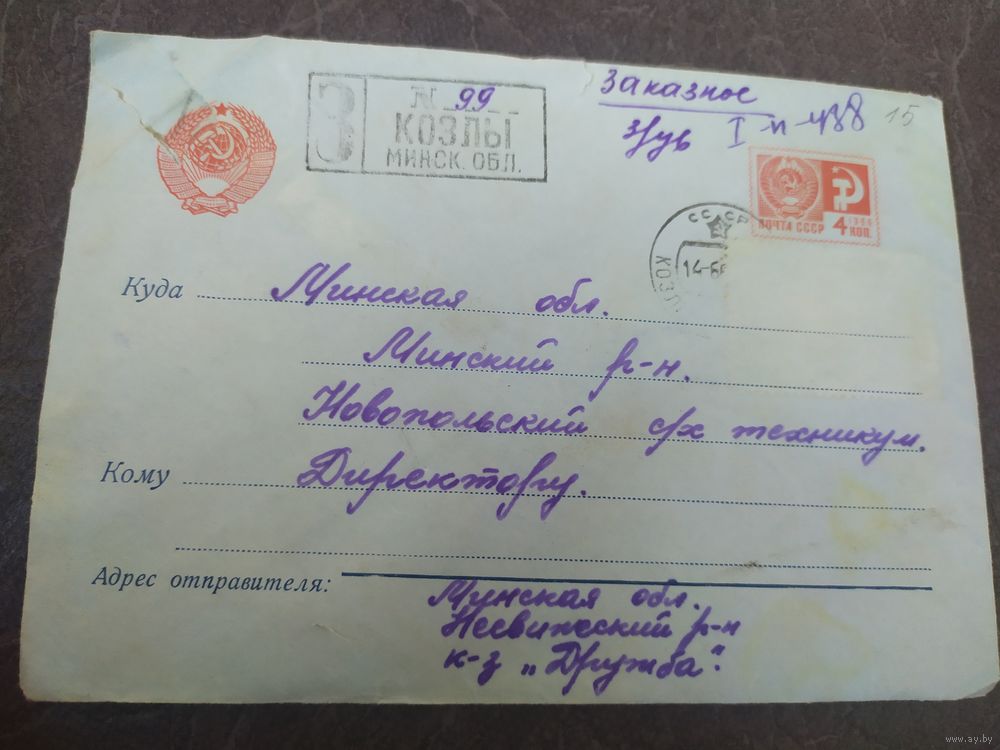 З
N 99
КОЗЛЫ
МИНСК. ОБЛ.
Заказное
15
ПОЧТА СССР 4 1966 КОП.
СССР
КОЗЛ
14-6
Куда Минская обл.
Минский р-н.
Новопольский с/х техникум.
Кому Директору.
Адрес отправителя:
Минская обл.
Несвижский р-н
к-з „Дружба".
www.ay.by